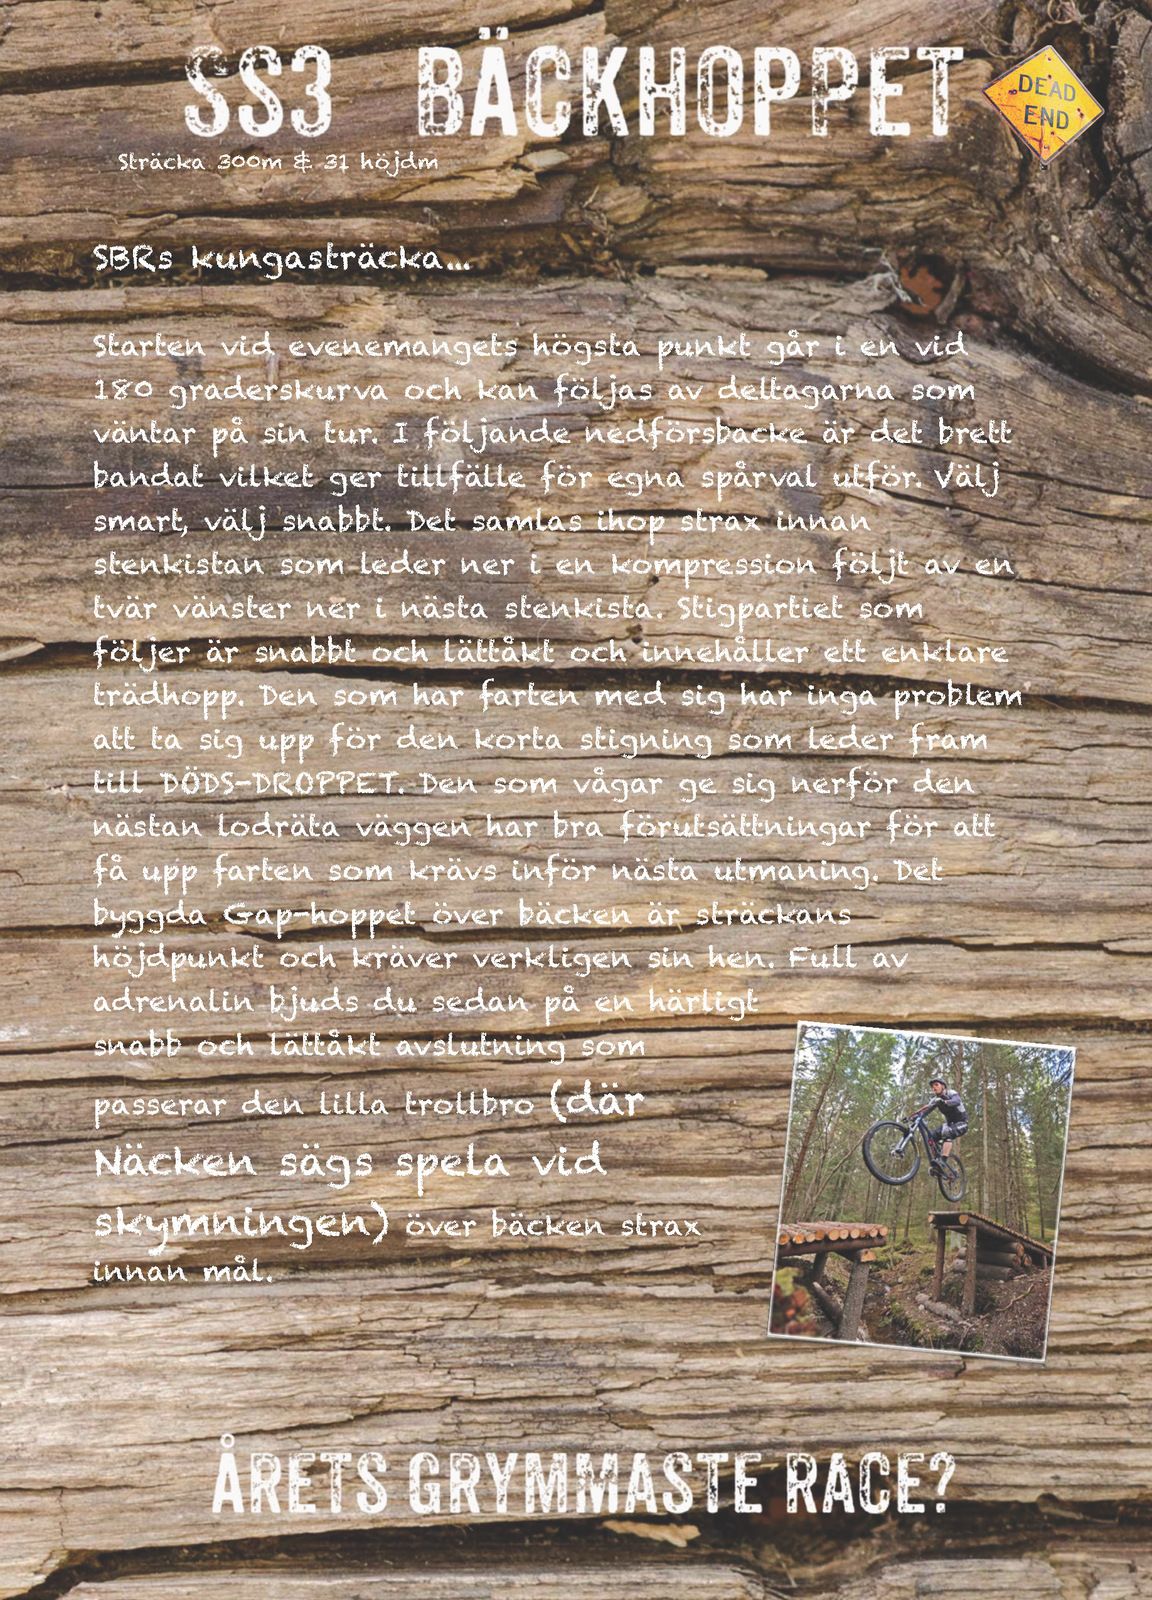 SS3 BÄCKHOPPET
DEAD
END
Sträcka 300m & 31 höjdm
SBRs kungasträcka...
Starten vid evenemangets högsta punkt går i en vid
180 graderskurva och kan följas av deltagarna som
väntar på sin tur. I följande nedförsbacke är det brett
bandat vilket ger tillfälle för egna spårval utför. Välj
smart, välj snabbt. Det samlas ihop strax innan
stenkistan som leder ner i en kompression följt av en
tvär vänster ner i nästa stenkista. Stigpartiet som
följer är snabbt och lättåkt och innehåller ett enklare
trädhopp. Den som har farten med sig har inga problem
att ta sig upp för den korta stigning som leder fram
till DÖDS-DROPPET. Den som vågar ge sig nerför den
nästan lodräta väggen har bra förutsättningar för att
få upp farten som krävs inför nästa utmaning. Det
byggda Gap-hoppet över bäcken är sträckans
höjdpunkt och kräver verkligen sin hen. Full av
adrenalin bjuds du sedan på en härligt
snabb och lättåkt avslutning som
passerar den lilla trollbro (där
Näcken sägs spela vid
skymningen) över bäcken strax
innan mål.
ÅRETS GRYMMASTE RACE?